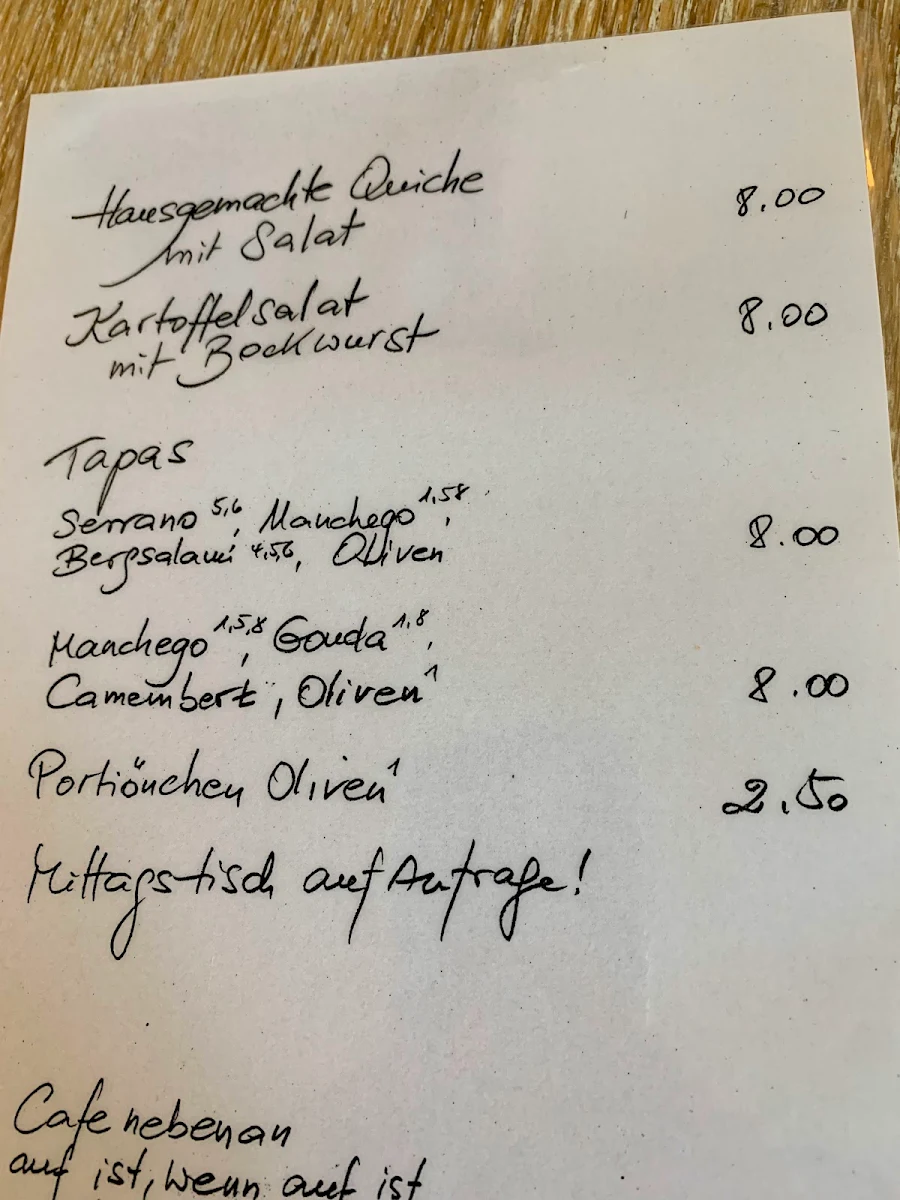 Hausgemachte Quiche 8.00
mit Salat
Kartoffelsalat 8.00
mit Bockwurst
Tapas
Serrano 5,6, Manchego 1,58,
Bergsalami 4,56, Oliven 8.00
Manchego 1,5,8, Gouda 1,8,
Camembert, Oliven 1 8.00
Portiönchen Oliven 1 2.50
Mittagstisch auf Anfrage!
Cafe nebenan
auf ist, wenn auf ist